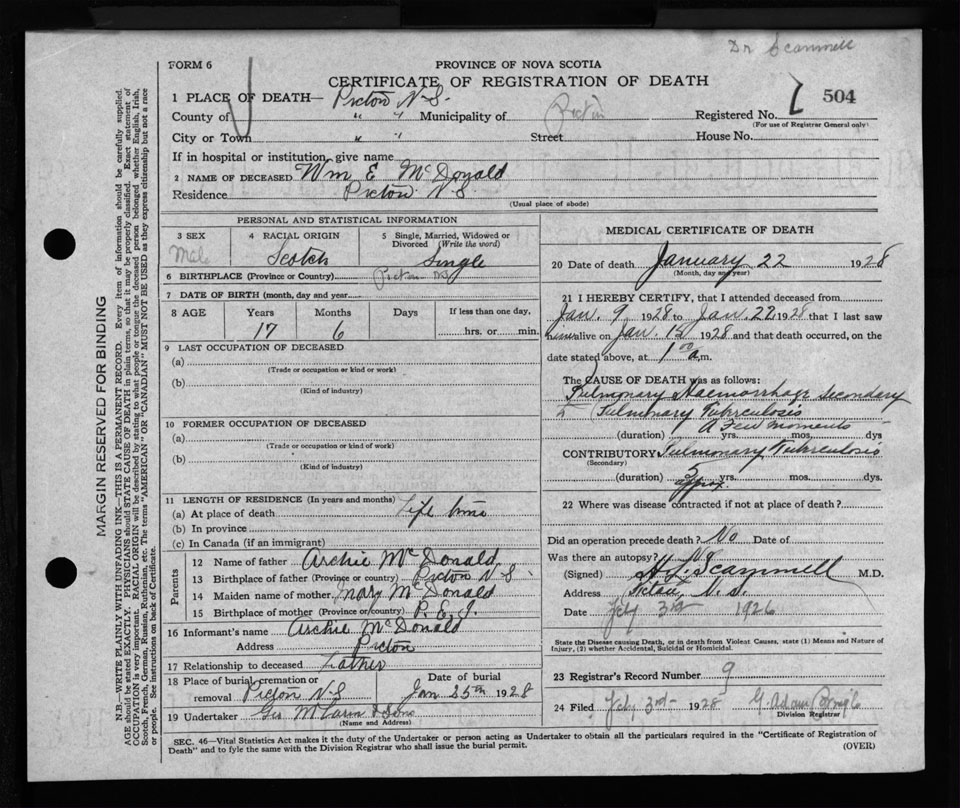 Dr Scammell
FORM 6
PROVINCE OF NOVA SCOTIA
CERTIFICATE OF REGISTRATION OF DEATH
504
1 PLACE OF DEATH— Pictou N.S.
County of " " Municipality of Pictou Registered No.
(For use of Registrar General only)
City or Town " " Street House No.
If in hospital or institution, give name
2 NAME OF DECEASED Wm E McDonald
Residence Pictou N.S
(Usual place of abode)
PERSONAL AND STATISTICAL INFORMATION
3 SEX Male
4 RACIAL ORIGIN Scotch
5 Single, Married, Widowed or Divorced (Write the word) Single
6 BIRTHPLACE (Province or Country) Pictou NS
7 DATE OF BIRTH (month, day and year
8 AGE Years Months Days If less than one day,
17 6 hrs. or min.
9 LAST OCCUPATION OF DECEASED
(a)
(Trade or occupation or kind or work)
(b)
(Kind of industry)
10 FORMER OCCUPATION OF DECEASED
(a)
(Trade or occupation or kind of work)
(b)
(Kind of industry)
11 LENGTH OF RESIDENCE (In years and months)
(a) At place of death Life time
(b) In province
(c) In Canada (if an immigrant)
Parents
12 Name of father Archie McDonald
13 Birthplace of father (Province or country) Pictou N S
14 Maiden name of mother Mary McDonald
15 Birthplace of mother (Province or country) P. E. I.
16 Informant's name Archie McDonald
Address Pictou
17 Relationship to deceased Father
18 Place of burial, cremation or removal Pictou N.S
Date of burial Jan 25th 1928
19 Undertaker Geo McLaren & Sons
(Name and Address)
MEDICAL CERTIFICATE OF DEATH
20 Date of death January 22 1928
(Month, day and year)
21 I HEREBY CERTIFY, that I attended deceased from
Jan. 9 1928 to Jan. 22, 1928 that I last saw
him alive on Jan. 1928 and that death occurred, on the
date stated above, at 1 00 a.m.
The CAUSE OF DEATH was as follows:
Pulmonary Haemorrhage secondary
Pulmonary Tuberculosis
A Few moments
(duration) yrs. mos. dys
CONTRIBUTORY Pulmonary Tuberculosis
(Secondary)
(duration) 5 yrs. mos. dys.
approx.
22 Where was disease contracted if not at place of death?
Did an operation precede death? No Date of
Was there an autopsy? No
(Signed) H L Scammell M.D.
Address N. S.
Date Feb 3rd 1926
State the Disease causing Death, or in death from Violent Causes, state (1) Means and Nature of
Injury, (2) whether Accidental, Suicidal or Homicidal.
23 Registrar's Record Number 9
24 Filed Feb 3rd 1928 G. Adam
Division Registrar
SEC. 46—Vital Statistics Act makes it the duty of the Undertaker or person acting as Undertaker to obtain all the particulars required in the "Certificate of Registration of
Death" and to fyle the same with the Division Registrar who shall issue the burial permit.
(OVER)
MARGIN RESERVED FOR BINDING
N.B.—WRITE PLAINLY WITH UNFADING INK—THIS IS A PERMANENT RECORD. Every item of information should be carefully supplied.
AGE should be stated EXACTLY. PHYSICIANS should STATE CAUSE OF DEATH in plain terms, so that it may be properly classified. Exact statement of
OCCUPATION is very important. RACIAL ORIGIN will be described by stating to what people or tongue the deceased person belonged whether English, Irish,
Scotch, French, German, Russian, Ruthenian, etc. The terms "AMERICAN" OR "CANADIAN" MUST NOT BE USED as they express citizenship but not a race
or people. See instructions on back of Certificate.